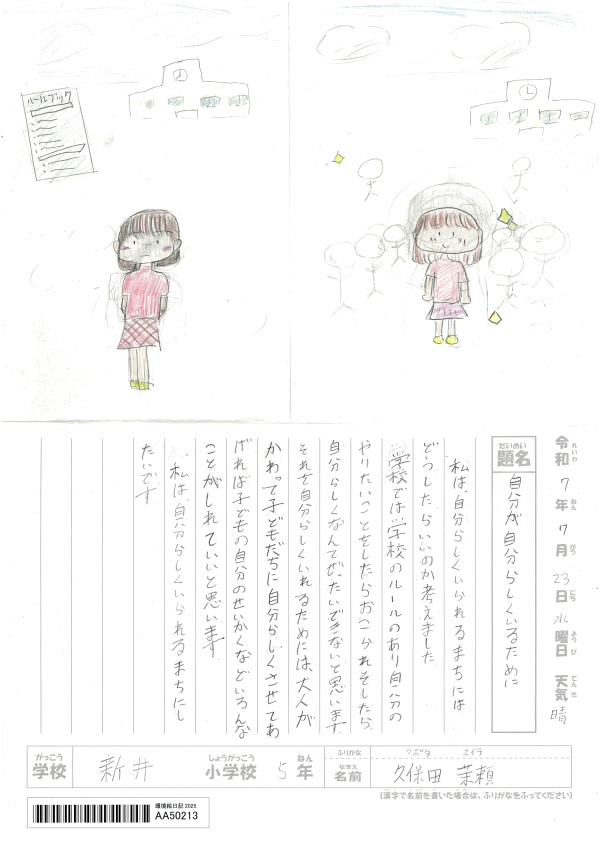 ルールブック
令和 7年 7月 23日 水曜日 天気 晴
れいわ ねん がつ にち ようび てんき
だいめい
題名 自分が自分らしくいるために
私は、自分らしくいられるまちには
どうしたらいいのか考えました
学校では学校のルールのあり自分の
やりたいことをしたらおこられそしたら
自分らしくなんてぜったいできないと思います
それを自分らしくいれるためには、大人が
かわって子どもだちに自分らしくさせてあ
げれば子どもの自分のせいかくなどいろんな
ことがしれていいと思います
私は、自分らしくいられるまちにし
たいです
がっこう しょうがっこう ねん
学校 新井 小学校 5年
ふりがな クボタ
なまえ
名前 久保田 茉頼
(漢字で名前を書いた場合は、ふりがなをふってください)
環境絵日記 2025
AA50213